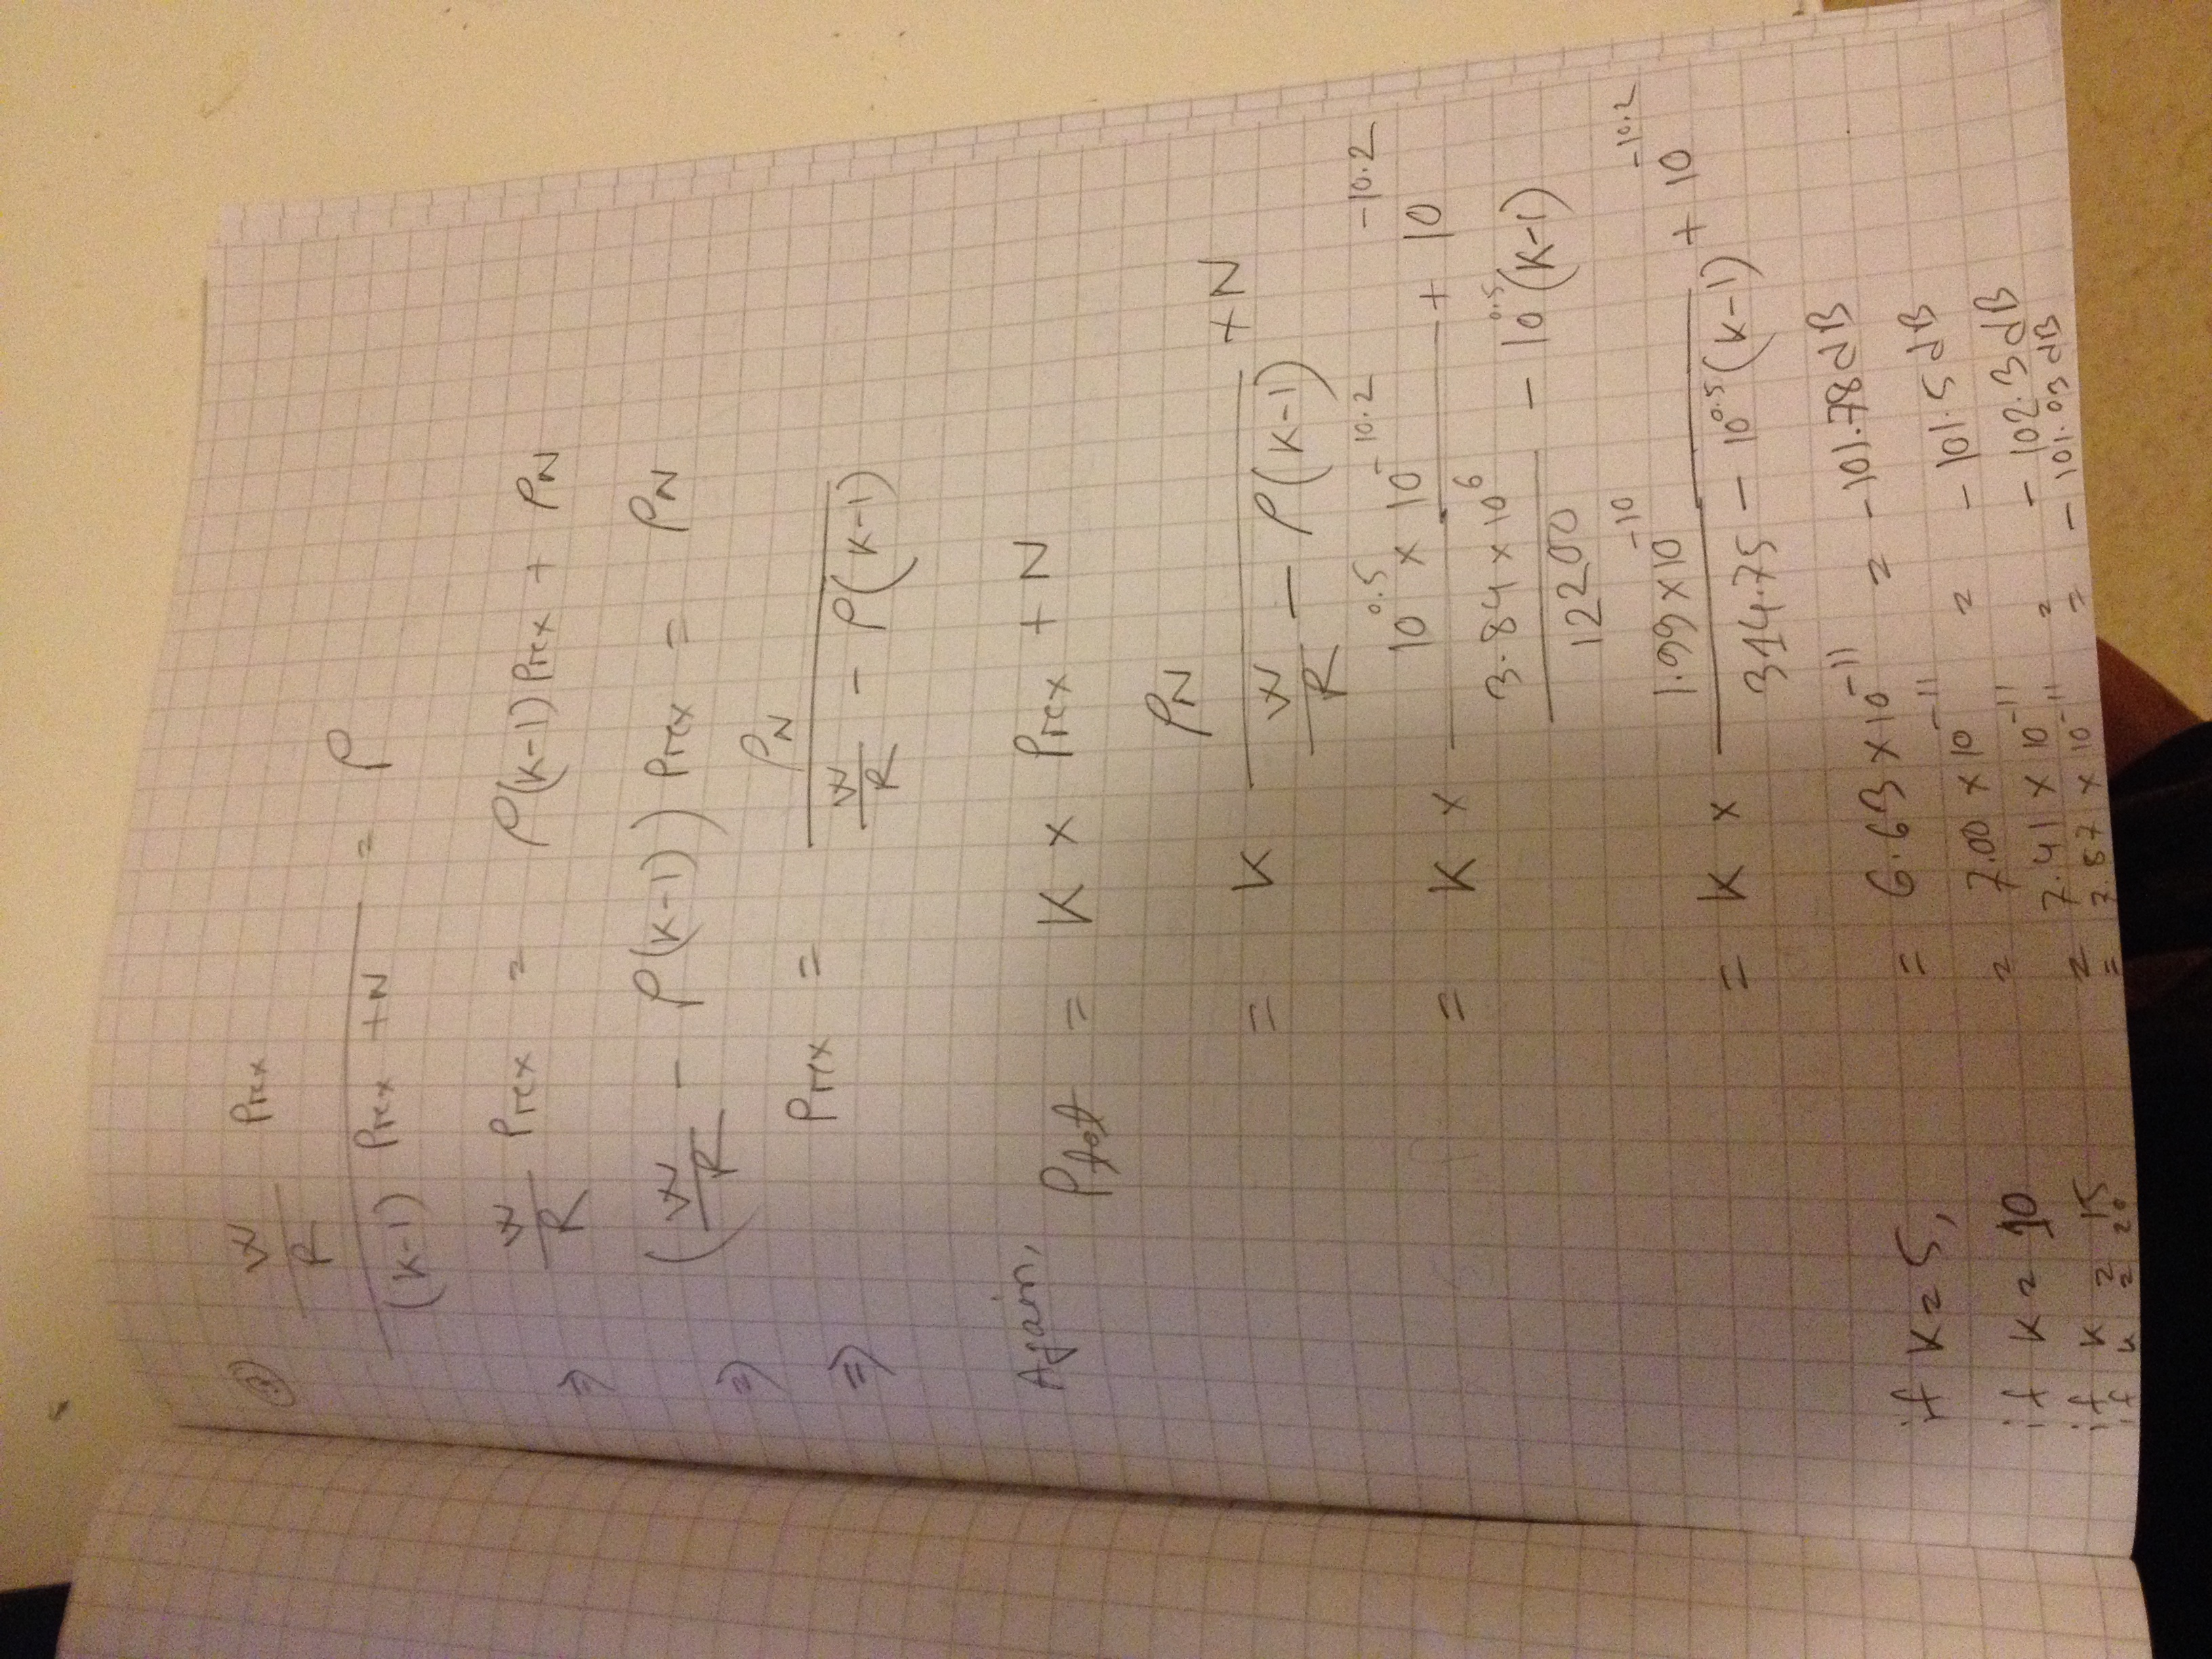 ③ W/R Prex / ((K-1) Prex + N) = ρ
⇒ W/R Prex = ρ(K-1) Prex + ρN
⇒ (W/R - ρ(K-1)) Prex = ρN
⇒ Prex = ρN / (W/R - ρ(K-1))
Again,
Ptot = K × Prex + N
= K ρN / (W/R - ρ(K-1)) + N
= K × (10^0.5 × 10^-10.2) / (3.84 × 10^6 / 12200 - 10^0.5 (K-1)) + 10^-10.2
= K × 1.99 × 10^-10 / (314.75 - 10^0.5 (K-1)) + 10^-10.2
if K = 5, = 6.63 × 10^-11 = -101.78 dB
if K = 10 = 7.00 × 10^-11 = -101.5 dB
if K = 15 = 7.41 × 10^-11 = -102.3 dB
if K = 20 = 7.87 × 10^-11 = -101.03 dB